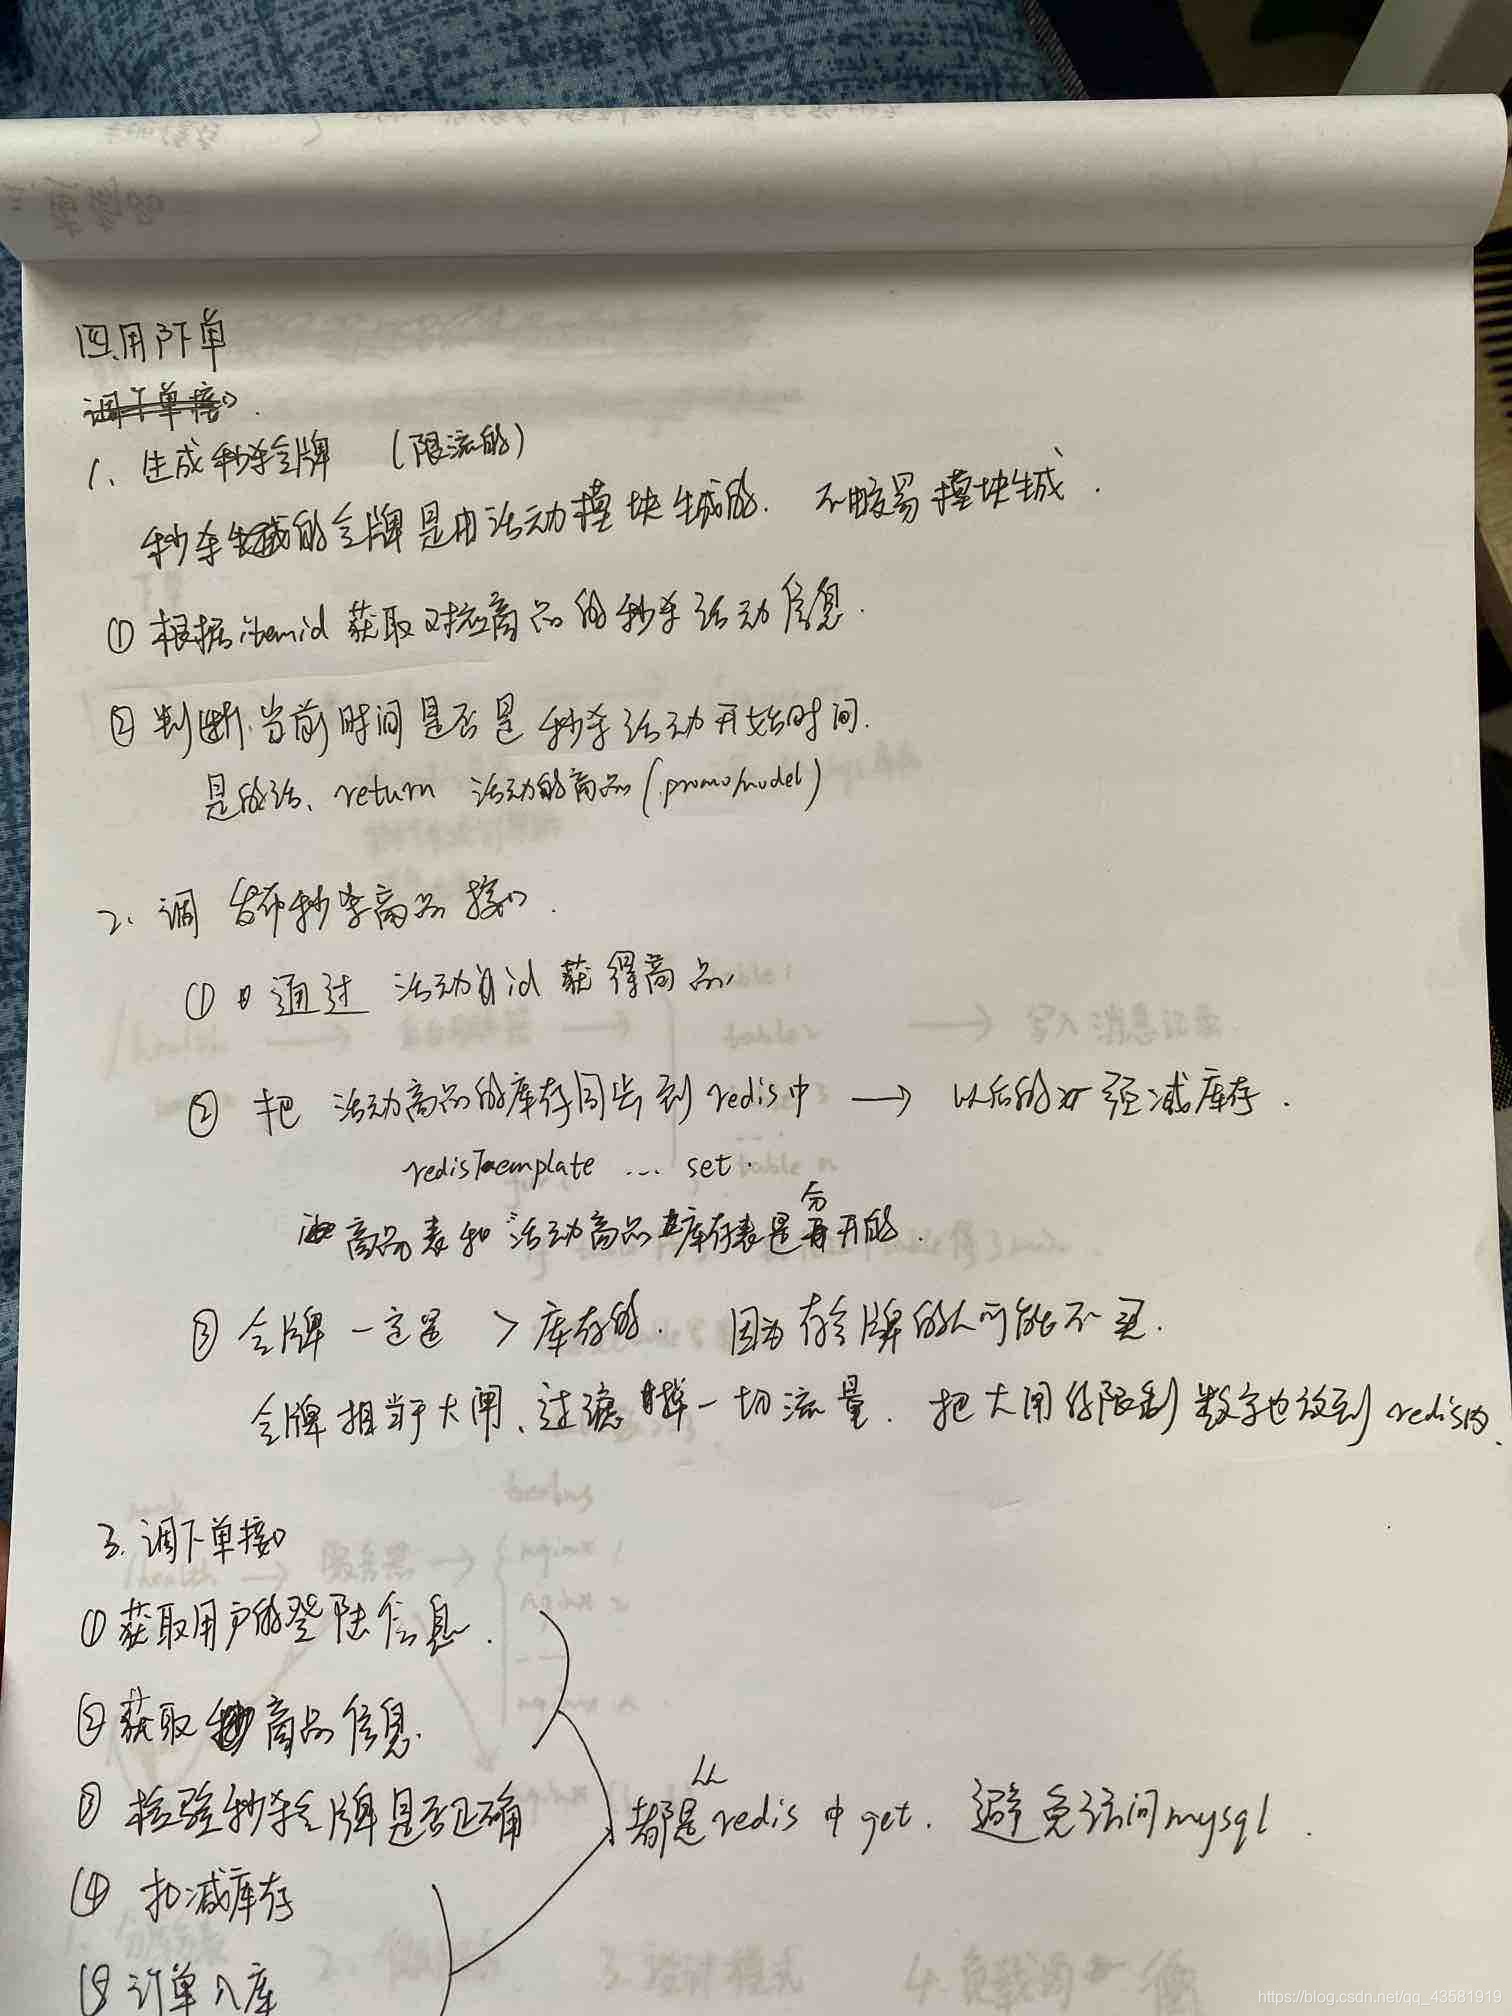 四、用户下单
调下单接口.
1、生成秒杀令牌 (限流的)
秒杀的令牌是由活动模块生成的. 不由交易模块生成.
① 根据itemid 获取对应商品的秒杀活动信息.
② 判断当前时间是否是秒杀活动开始时间.
是的话、return 活动的商品(promomodel)
2、调 发布秒杀商品接口.
① 通过 活动的id 获得商品
② 把 活动商品的库存同步到redis中 → 以后的 减库存.
redisTemplate ... set.
商品表和活动商品库存表是分开的.
③ 令牌一定是 > 库存的. 因为有令牌的人可能不买.
令牌相当于大闸、过滤掉一切流量. 把大闸的限制数字也放到redis内.
3. 调下单接口
① 获取用户的登陆信息.
② 获取商品信息.
③ 检验秒杀令牌是否正确
都是从redis中get. 避免访问mysql.
④ 扣减库存
⑤ 订单入库
https://blog.csdn.net/qq_43581919